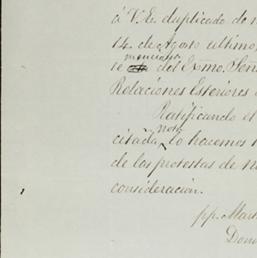 á V.E. duplicado de n
14. de Agosto ultimo,
mencionada
te del Exmo. Señ
Relaciones Esteriores
Ratificando el
nota
citada, lo hacemos
de las protestas de n
consideracion.
pp. Mart
Dom